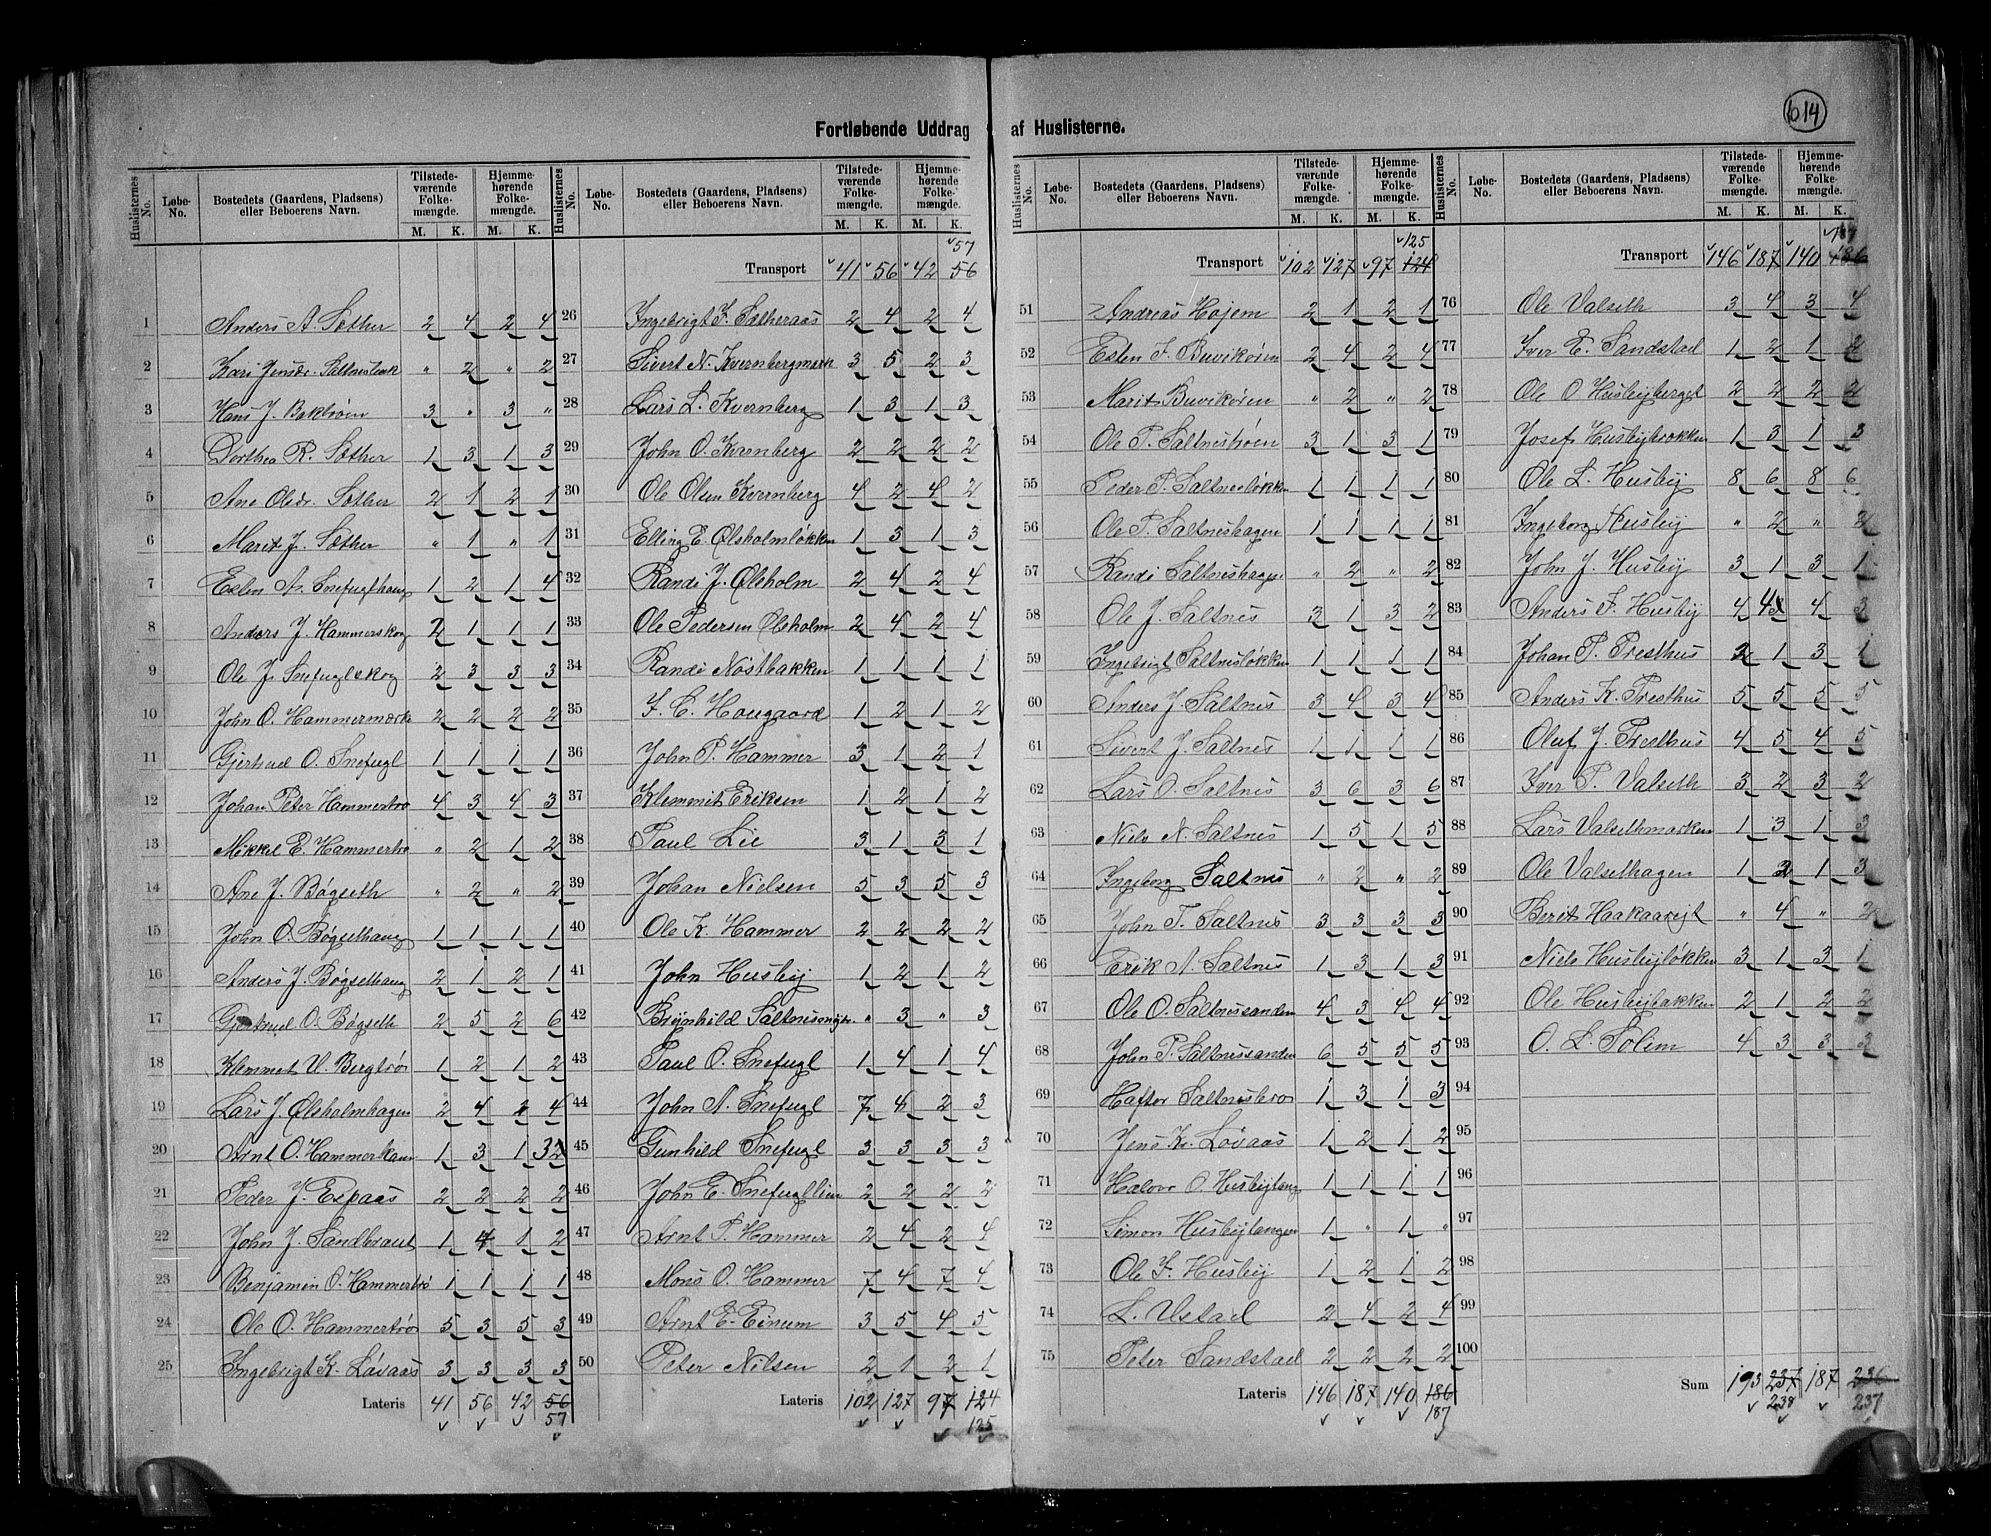 614
Fortløbende Uddrag af Huslisterne.
Huslisternes No. Løbe-No. Bostedets (Gaardens, Pladsens) eller Beboerens Navn. Tilstedeværende Folkemængde. M. K. Hjemmehørende Folkemængde. M. K.
1 Anders A. Sæther 2 4 2 4
2 Kari Jensdr. 〃 2 〃 2
3 Hans J. Bakktrøen 3 〃 3 〃
4 Dorthea R. Sæther 1 3 1 3
5 Ane Olsdr. Sæther 2 1 2 1
6 Marit J. Sæther 〃 1 〃 1
7 Esten A. Snefuglhaug 1 2 1 4
8 Anders J. Hammerskog 2 1 1 1
9 Ole J. Snefuglskog 2 3 3 3
10 John O. Hammermarke 2 2 2 2
11 O. Snefugl 1 1 1 1
12 Johan Peter Hammertrø 4 3 4 3
13 Mikkel E. Hammertrø 〃 2 1 2
14 Ane J. Bøgseth 〃 2 〃 2
15 John O. Bøgsethaug 1 1 1 1
16 Anders J. Bøgsethaug 2 1 2 1
17 Gjertrud O. Bøgseth 2 5 2 6
18 Klemmet Bergtrø 1 2 1 2
19 Lars J. Ølsholmhagen 2 4 2 4
20 Arnt O. 1 3 1 3
21 Peder J. Espaas 2 2 2 2
22 John J. Sandbraut 1 4 1 2
23 Benjamin O. Hammertrø 1 1 1 1
24 Ole O. Hammertrø 5 3 5 3
25 Ingebrigt K. Løvaas 3 3 3 3
Lateris 41 56 42 56
57
Huslisternes No. Løbe-No. Bostedets (Gaardens, Pladsens) eller Beboerens Navn. Tilstedeværende Folkemængde. M. K. Hjemmehørende Folkemængde. M. K.
57
Transport 41 56 42 56
26 Ingebrigt F. Sætheraas 2 4 2 4
27 Sivert N. Kvernbergmark 3 5 2 3
28 Lars L. Kvernberg 1 3 1 3
29 John O. Kvernberg 2 2 2 2
30 Ole Olsen Kvernberg 4 2 4 2
31 Elling E. Ølsholmløkken 1 3 1 3
32 Randi J. Ølsholm 2 4 2 4
33 Ole Pedersen Ølsholm 2 4 2 4
34 Randi Nøstbakken 1 1 1 1
35 Hougaard 1 2 1 2
36 John P. Hammer 3 1 2 1
37 Klemmit Eriksen 1 2 1 2
38 Paul Lie 3 1 3 1
39 Johan Nielsen 5 3 5 3
40 Ole K. Hammer 2 2 2 2
41 John Husby 1 2 1 2
42 Brynhild 〃 3 〃 3
43 Paul O. Snefugl 1 4 1 4
44 John A. Snefugl 7 4 2 3
45 Gunhild Snefugl 3 3 3 3
46 John E. Snefugllien 2 2 2 2
47 Arnt P. Hammer 2 4 2 4
48 Mons O. Hammer 7 4 7 4
49 Arnt E. Einum 3 5 4 5
50 Peter Nilsen 2 1 2 1
Lateris 102 127 97 124
125
Huslisternes No. Løbe-No. Bostedets (Gaardens, Pladsens) eller Beboerens Navn. Tilstedeværende Folkemængde. M. K. Hjemmehørende Folkemængde. M. K.
125
Transport 102 127 97 124
51 Andreas Højem 2 1 2 1
52 Esten F. Buvikøren 2 4 2 4
53 Marit Buvikøren 〃 2 〃 2
54 Ole P. Saltnestrøen 3 1 3 1
55 Peder P. Saltnesløkken 1 1 1 1
56 Ole P. Saltneshagen 1 1 1 1
57 Randi Saltneshagen 〃 2 〃 2
58 Ole J. Saltnes 3 1 3 2
59 Ingebrigt Saltnesløkken 1 1 1 1
60 Anders J. Saltnes 3 4 3 4
61 Sivert J. Saltnes 1 1 1 1
62 Lars O. Saltnes 3 6 3 6
63 Niels N. Saltnes 1 5 1 5
64 Ingeborg Saltnes 〃 2 〃 2
65 John T. Saltnes 3 3 3 3
66 Erik A. Saltnes 1 3 1 3
67 Ole O. Saltnessanden 4 3 4 4
68 John P. Saltnessanden 6 5 5 5
69 Haftor Saltnesbro 1 3 1 3
70 Jens Kr. Løvaas 1 2 1 2
71 Halvor O. 1 1 1 1
72 Simon Husbylangen 1 〃 1 〃
73 Ole F. Husby 1 2 1 2
74 L. Ustad 2 4 2 4
75 Peter Sandstad 2 2 2 2
Lateris 146 187 140 186
187
Huslisternes No. Løbe-No. Bostedets (Gaardens, Pladsens) eller Beboerens Navn. Tilstedeværende Folkemængde. M. K. Hjemmehørende Folkemængde. M. K.
187
Transport 146 187 140 186
76 Ole Valseth 3 4 3 4
77 Iver E. Sandstad 1 2 1 2
78 Ole O. Husbyberget 2 2 2 2
79 Josef Husbybrækken 1 3 1 3
80 Ole L. Husby 8 6 8 6
81 Ingeborg Husby 〃 2 〃 2
82 John J. Husby 3 1 3 1
83 Anders F. Husby 4 4 4 3
84 Johan P. Presthus 2 1 3 1
85 Anders K. Presthus 5 5 5 5
86 Oluf J. Presthus 4 5 4 5
87 Iver P. Valseth 3 2 3 2
88 Lars Valsethmarken 1 3 1 3
89 Ole Valsethagen 1 3 1 3
90 Berit 〃 4 〃 2
91 Niels Husbyløkken 3 1 3 1
92 Ole Husbybakken 2 1 2 2
93 O. L. Solem 4 3 3 3
94
95
96
97
98
99
100
Sum 193 237 187 236
238 237